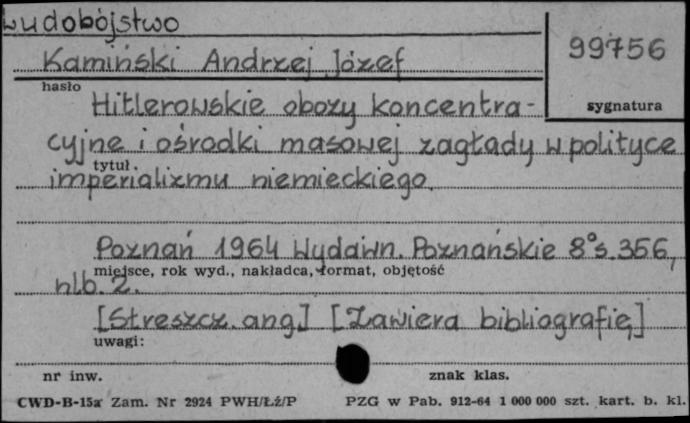 Ludobójstwo
Kamiński Andrzej Józef
99756
hasło
sygnatura
Hitlerowskie obozy koncentra-
cyjne i ośrodki masowej zagłady w polityce
tytuł
imperializmu niemieckiego.
Poznań 1964 Wydawn. Poznańskie 8° s. 356,
miejsce, rok wyd., nakładca, format, objętość
nlb. 2.
[Streszcz. ang.] [Zawiera bibliografię]
uwagi:
nr inw.
znak klas.
CWD-B-15a Zam. Nr 2924 PWH/Łź/P
PZG w Pab. 912-64 1 000 000 szt. kart. b. kl.